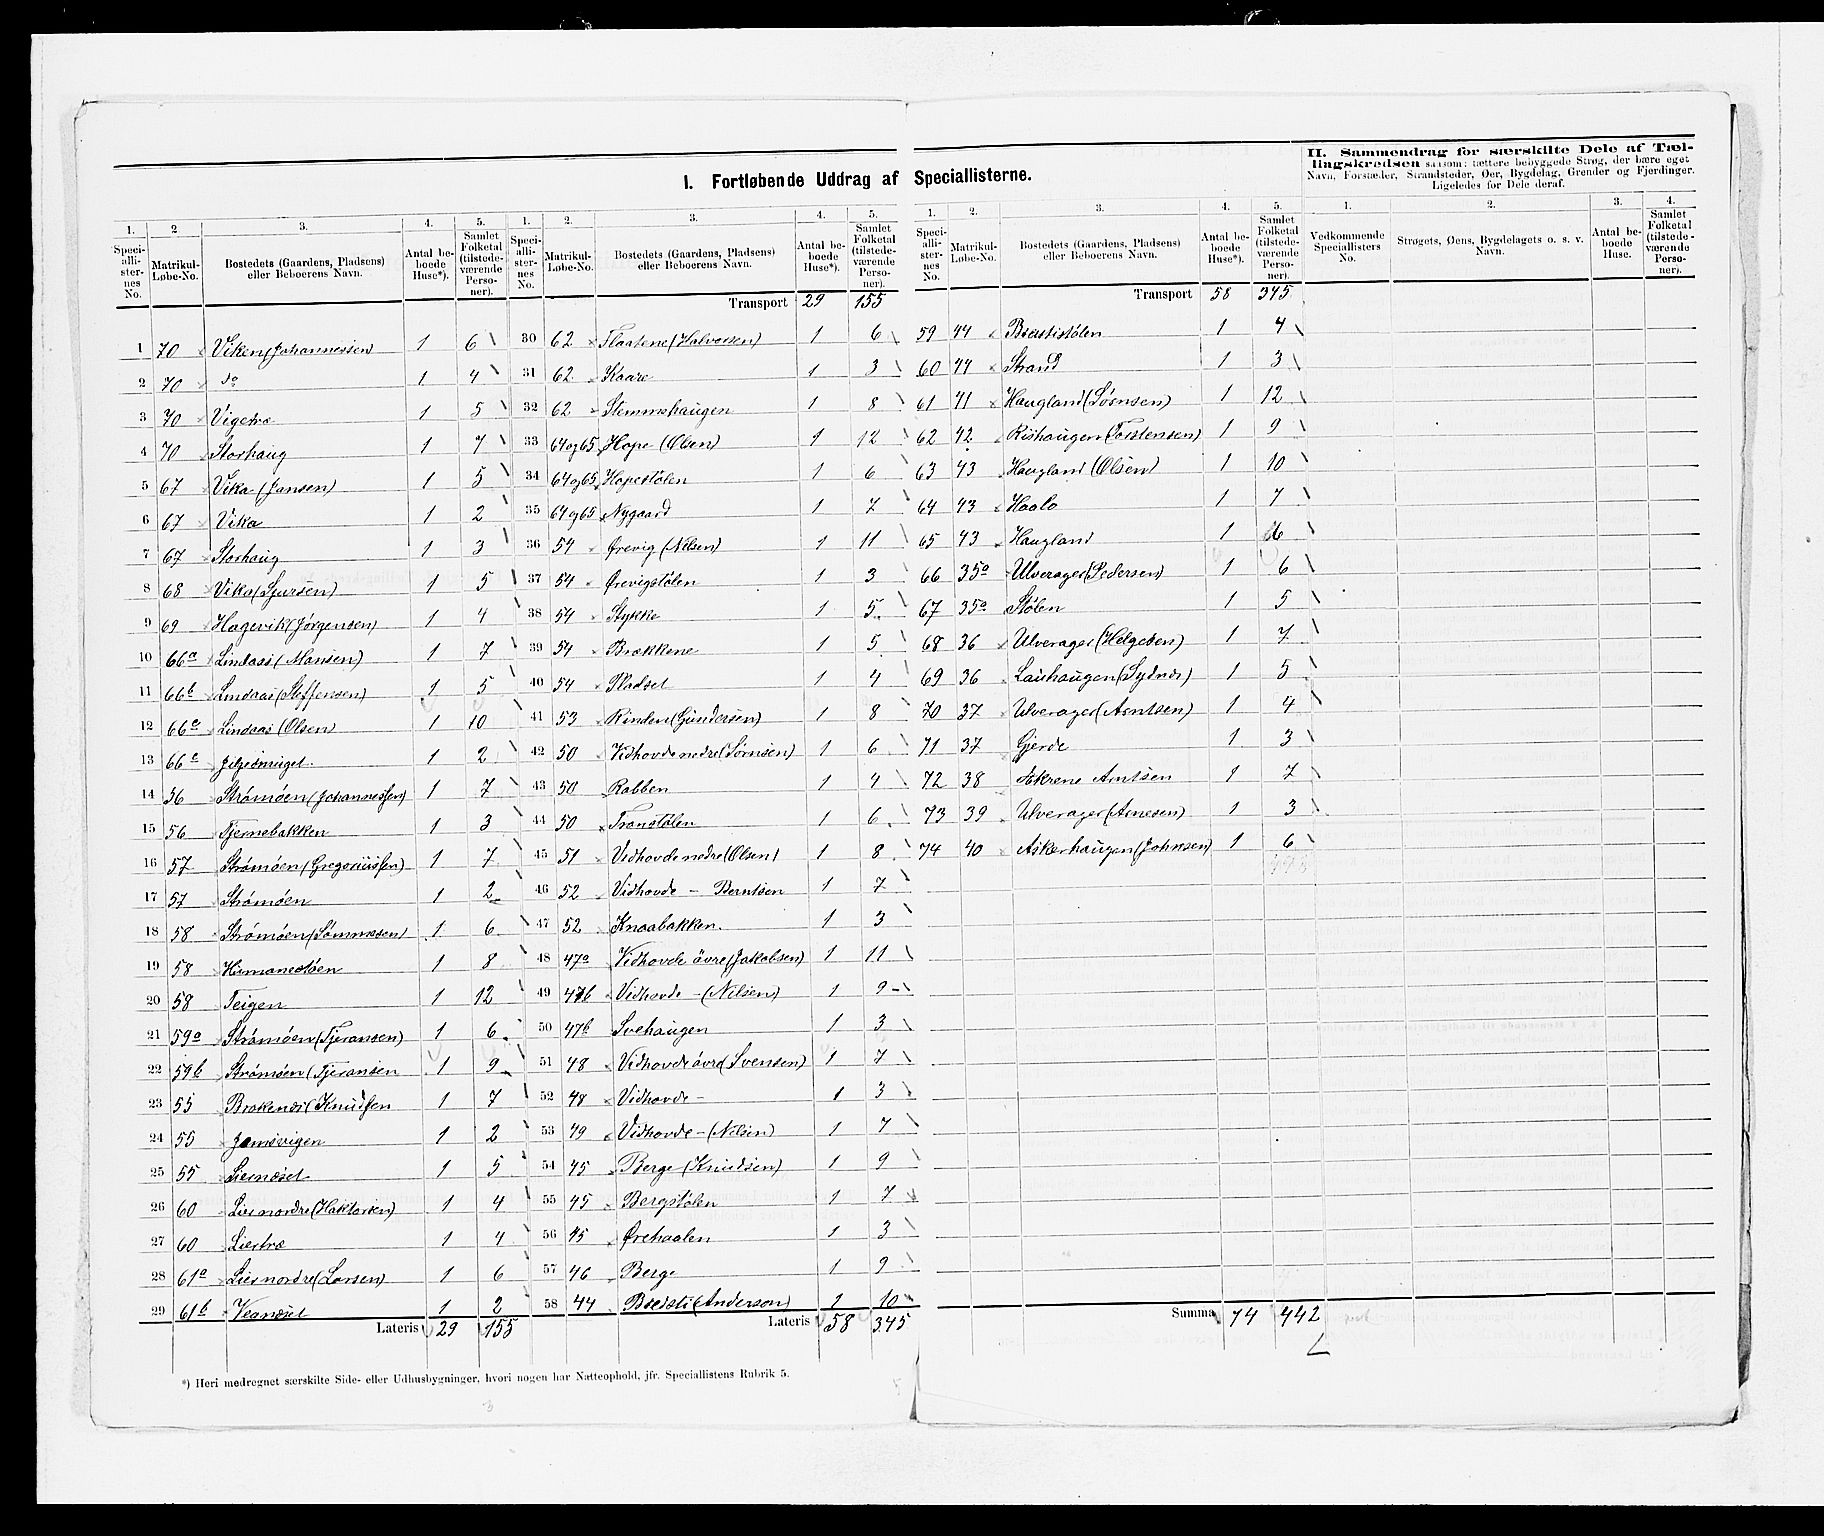 I. Fortløbende Uddrag af Speciallisterne.
II. Sammendrag for særskilte Dele af Tællingskredsen saasom: tættere bebyggede Strøg, der bære eget
Navn, Forstæder, Strandsteder, Øer, Bygdelag, Grender og Fjerdinger.
Ligeledes for Dele deraf.
1. 2 3. 4. 5.
Speciallisternes No. Matrikul-Løbe-No. Bostedets (Gaardens, Pladsens) eller Beboerens Navn. Antal beboede Huse*). Samlet Folketal (tilstedeværende Personer).
1 70 Viken (Johannessen) 1 6
2 70 do 1 4
3 70 Vigetræ 1 5
4 70 Storhaug 1 7
5 67 Vika (Jansen) 1 5
6 67 Vika 1 2
7 67 Storhaug 1 3
8 68 Vika (Sjursen) 1 5
9 69 Hagevik (Jörgensen) 1 4
10 66a Lindaas (Mansen) 1 7
11 66b Lindaas (Steffensen) 1 5
12 66c Lindaas (Olsen) 1 10
13 66c 1 2
14 56 Strömöen (Johannesen) 1 7
15 56 Tjernebakken 1 3
16 57 Strömöen (Gregoriussen) 1 7
17 57 Strömöen 1 2
18 58 Strömöen (Sömmesen) 1 6
19 58 1 8
20 58 Teigen 1 12
21 59a Strömöen (Tjeransen) 1 6
22 59b Strömöen (Tjeransen 1 9
23 55 Brakenæs (Knudsen 1 7
24 55 Jamsvigen 1 2
25 55 Liernæset 1 5
26 60 Lies nordre (Haktorsen) 1 4
27 60 Liestræ 1 4
28 61a Lies nordre (Larsen) 1 6
29 61b Veanæset 1 2
Lateris 29 155
1. 2. 3. 4. 5.
Speciallisternes No. Matrikul-Løbe-No. Bostedets (Gaardens, Pladsens) eller Beboerens Navn. Antal beboede Huse*). Samlet Folketal (tilstedeværende Personer).
Transport 29 155
30 62 Flaatene (Halvorsen) 1 6
31 62 Kaare 1 3
32 62 Stemmehaugen 1 8
33 64og65 Hope (Olsen) 1 12
34 64og65 Hopestölen 1 6
35 64og65 Nygaard 1 7
36 54 Ørevig (Nelsen) 1 11
37 54 Ørevigstölen 1 3
38 54 Stykke 1 5
39 54 Brækkene 1 5
40 54 Pladset 1 4
41 53 Rinden (Gundersen) 1 8
42 50 Vidhovde nedre (Sörnsen) 1 6
43 50 Rabben 1 4
44 50 Transtölen 1 6
45 51 Vidhovde nedre (Olsen) 1 8
46 52 Vidhovde – Berntsen 1 7
47 52 Knaabakken. 1 3
48 47a Vidhovde övre (Jakobsen) 1 11
49 47b Vidhovde – (Nilsen) 1 9
50 47b Svehaugen 1 3
51 48 Vidhovde övre (Svensen) 1 7
52 48 Vidhovde – 1 3
53 49 Vidhovde – (Nilsen) 1 7
54 45 Berge (Knudsen) 1 9
55 45 Bergstölen 1 7
56 45 Ørehaalen 1 3
57 46 Berge 1 9
58 44 Breisti (Anderson) 1 10
Lateris 58 345
1. 2. 3. 4. 5.
Speciallisternes No. Matrikul-Løbe-No. Bostedets (Gaardens, Pladsens) eller Beboerens Navn. Antal beboede Huse*). Samlet Folketal (tilstedeværende Personer).
Transport 58 345
59 44 Breististölen 1 4
60 44 Strand 1 3
61 41 Haugland (Sörnsen) 1 12
62 42 Rishaugen (Torstensen) 1 9
63 43 Haugland (Olsen) 1 10
64 43 Haalo 1 7
65 43 Haugland 1 6
66 35a Ulverager (Pedersen) 1 6
67 35a Stölen 1 5
68 36 Ulverager (Helgesen) 1 7
69 36 Lauhaugen (Sydnes) 1 5
70 37 Ulverager (Arntsen) 1 4
71 37 Gjerde 1 3
72 38 Aekrene Arntsen 1 7
73 39 Ulverager (Arnesen) 1 3
74 40 Askerhaugen (Johnsen) 1 6
Summa 74 442
1. 2. 3. 4.
Vedkommende Speciallisters No. Strøgets, Øens, Bygdelagets o. s. v. Navn. Antal beboede Huse. Samlet Folketal (tilstedeværende Personer).
*) Heri medregnet særskilte Side- eller Udhusbygninger, hvori nogen har Natteophold, jfr. Speciallistens Rubrik 5.